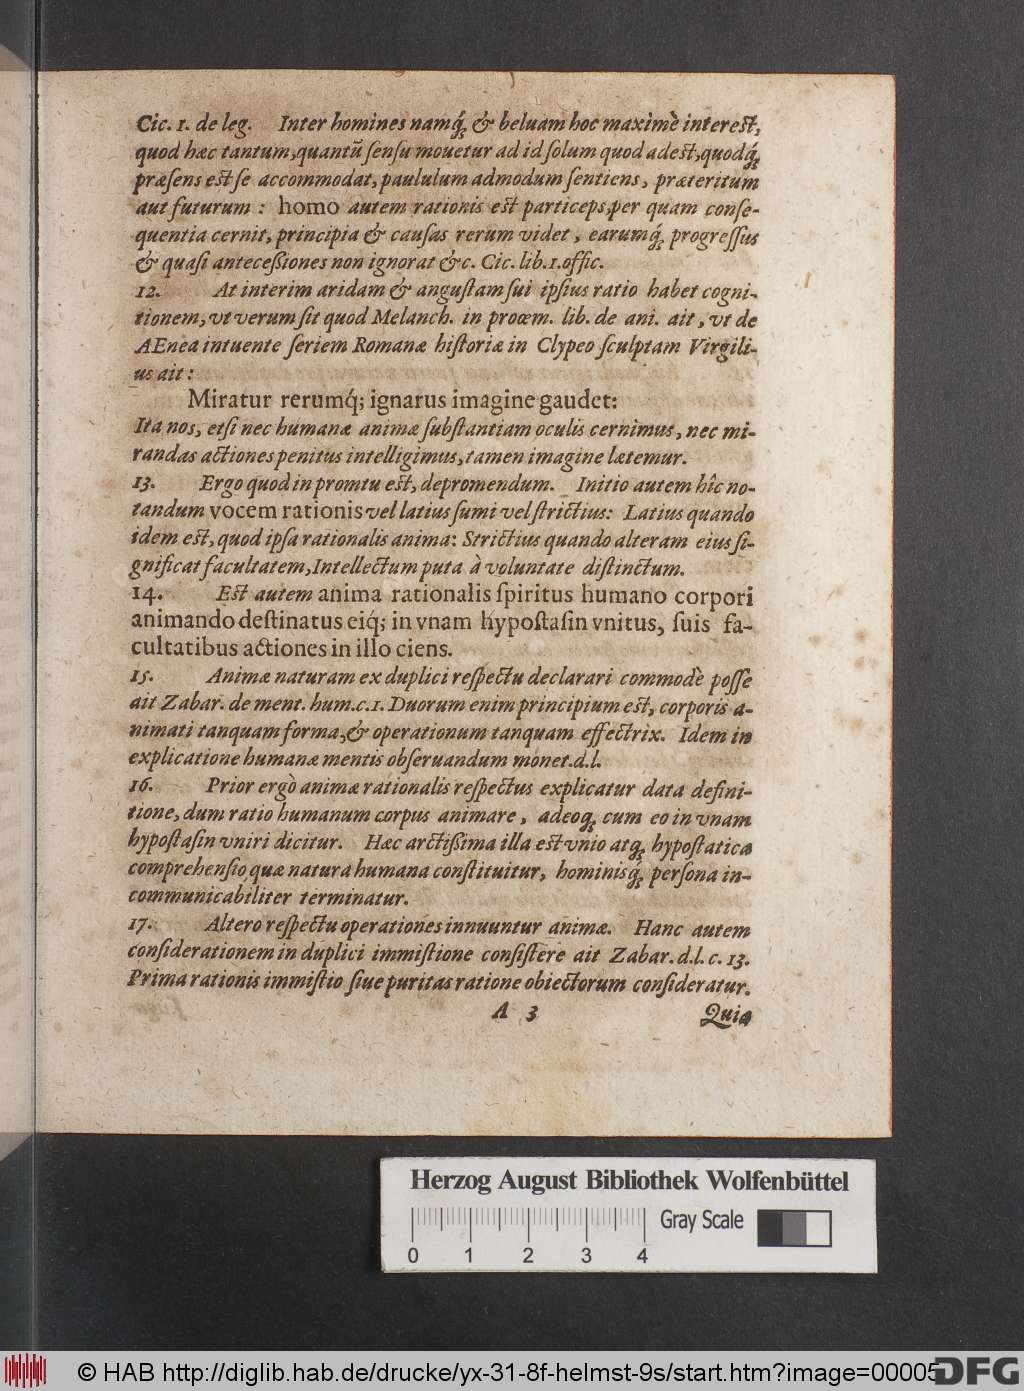 Cic. 1. de leg. Inter homines namq́; & beluam hoc maximè interest,
quod hæc tantum, quantũ sensu mouetur ad id solum quod adest, quodq́;
præsens est se accommodat, paululum admodum sentiens, præteritum
aut futurum: homo autem rationis est particeps, per quam conse-
quentia cernit, principia & causas rerum videt, earumq́; progressus
& quasi antecessiones non ignorat &c. Cic. lib. 1. offic.
12. At interim aridam & angustam sui ipsius ratio habet cogni-
tionem, vt verum sit quod Melanch. in proœm. lib. de ani. ait, vt de
AEnea intuente seriem Romanæ historiæ in Clypeo sculptam Virgili-
us ait:
Miratur rerumq́; ignarus imagine gaudet:
Ita nos, etsi nec humanæ animæ substantiam oculis cernimus, nec mi-
randas actiones penitus intelligimus, tamen imagine lætemur.
13. Ergo quod in promtu est, depromendum. Initio autem hîc no-
tandum vocem rationis vel latius sumi vel strictius: Latius quando
idem est, quod ipsa rationalis anima: Strictius quando alteram eius si-
gnificat facultatem, Intellectum puta à voluntate distinctum.
14. Est autem anima rationalis spiritus humano corpori
animando destinatus eiq́; in vnam hypostasin vnitus, suis fa-
cultatibus actiones in illo ciens.
15. Animæ naturam ex duplici respectu declarari commodè posse
ait Zabar. de ment. hum. c. 1. Duorum enim principium est, corporis a-
nimati tanquam forma, & operationum tanquam effectrix. Idem in
explicatione humanæ mentis obseruandum monet. d. l.
16. Prior ergò animæ rationalis respectus explicatur data defini-
tione, dum ratio humanum corpus animare, adeoq; cum eo in vnam
hypostasin vniri dicitur. Hæc arctissima illa est vnio atq; hypostatica
comprehensio, quæ natura humana constituitur, hominisq́; persona in-
communicabiliter terminatur.
17. Altero respectu operationes innuuntur animæ. Hanc autem
considerationem in duplici immistione consistere ait Zabar. d. l. c. 13.
Prima rationis immistio siue puritas ratione obiectorum consideratur.
A 3 Quia
Herzog August Bibliothek Wolfenbüttel
Gray Scale
0 1 2 3 4
© HAB http://diglib.hab.de/drucke/yx-31-8f-helmst-9s/start.htm?image=00005
DFG